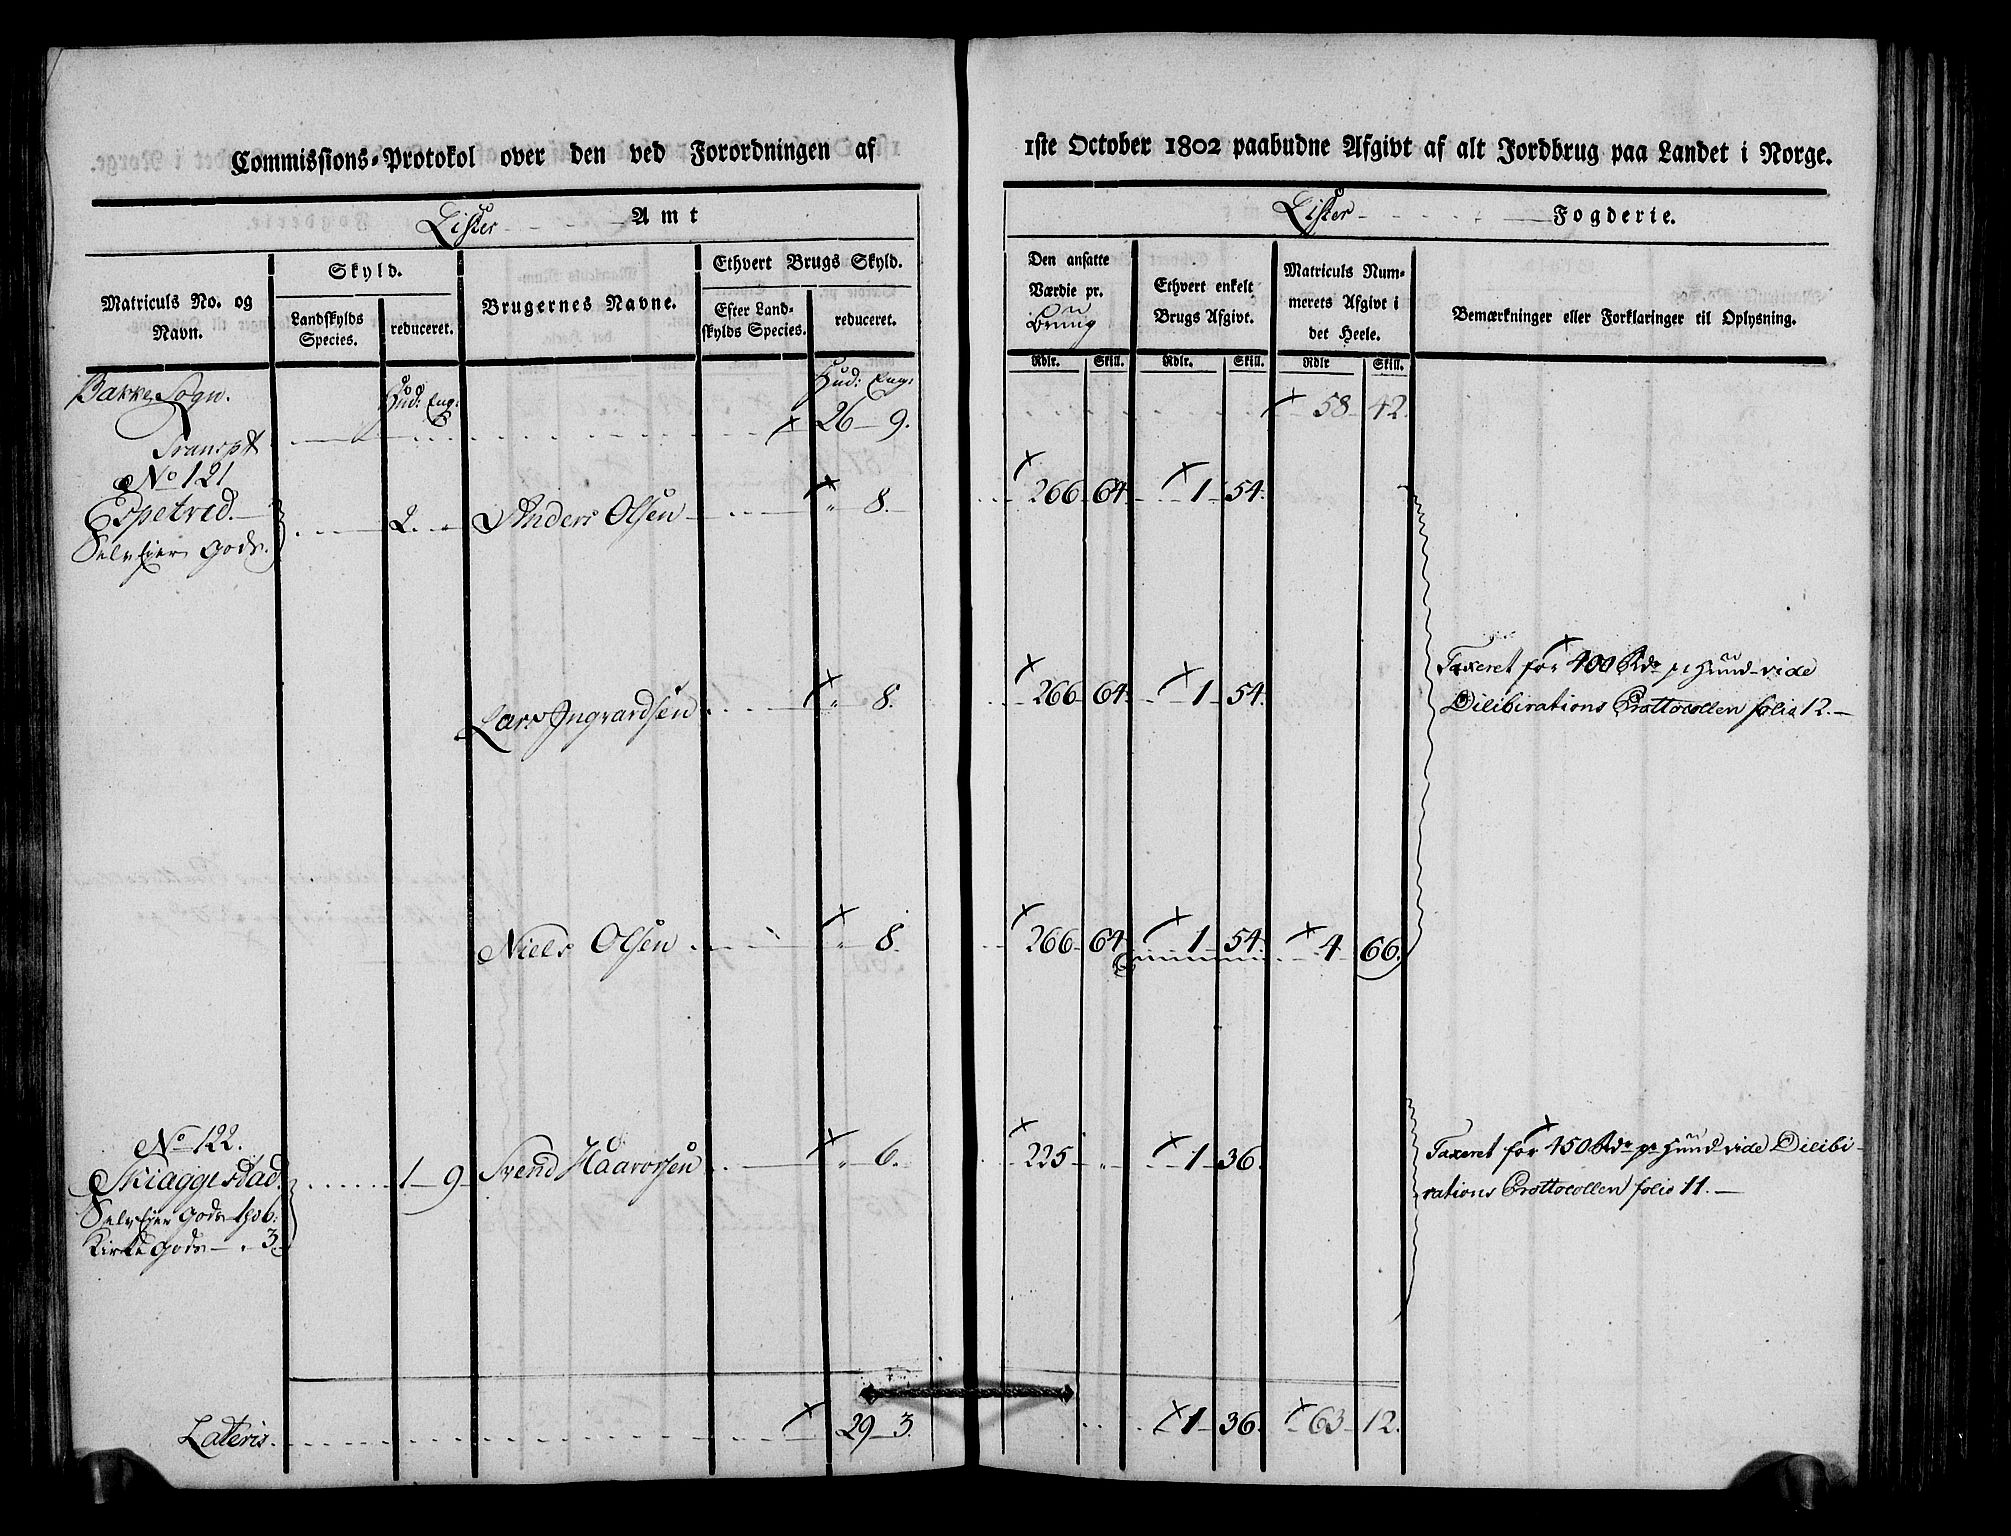 Commissions-Protokol over den ved Forordningen af 1ste October 1802 paabudne Afgivt af alt Jordbrug paa Landet i Norge.
Lister Amt
Lister Fogderie.
Matriculs No. og Navn.
Skyld.
Landskylds Species.
reduceret.
Brugernes Navne.
Ethvert Brugs Skyld.
Efter Landskylds Species.
reduceret.
Den ansatte Værdie pr. Brung
Ethvert enkelt Brugs Afgivt.
Matriculs Nummerets Afgivt i det Heele.
Bemærkninger eller Forklaringer til Oplysning.
Rdlr. Skill. Rdlr. Skill. Rdlr Skill.
Bakke Sogn. Hud: Eng: Hud: Eng:
Transpt 26 9. 58 42.
No 121
Espetved. 2. Anders Olsen 8. 266 64. 1 54.
Selv Eier Gods.
Lars Ingvardsen 8. 266 64. 1 54. Taxeret for 400 Rdr pr Huud vide
Dilibirations Prottocollen folio 12.
Niels Olsen 8. 266 64 1 54. 4 66.
No 122.
Skiaggestad. 1 9 Svend Haavorsen 6. 225 " 1 36. Taxeret for 450 Rdr pr Huud vide Dilibi-
Selv Eier Gods 1h 6: rations Prottocollen folio 11.
Kirke Gods 3
Lateris. 29 3. 1 36. 63 12.